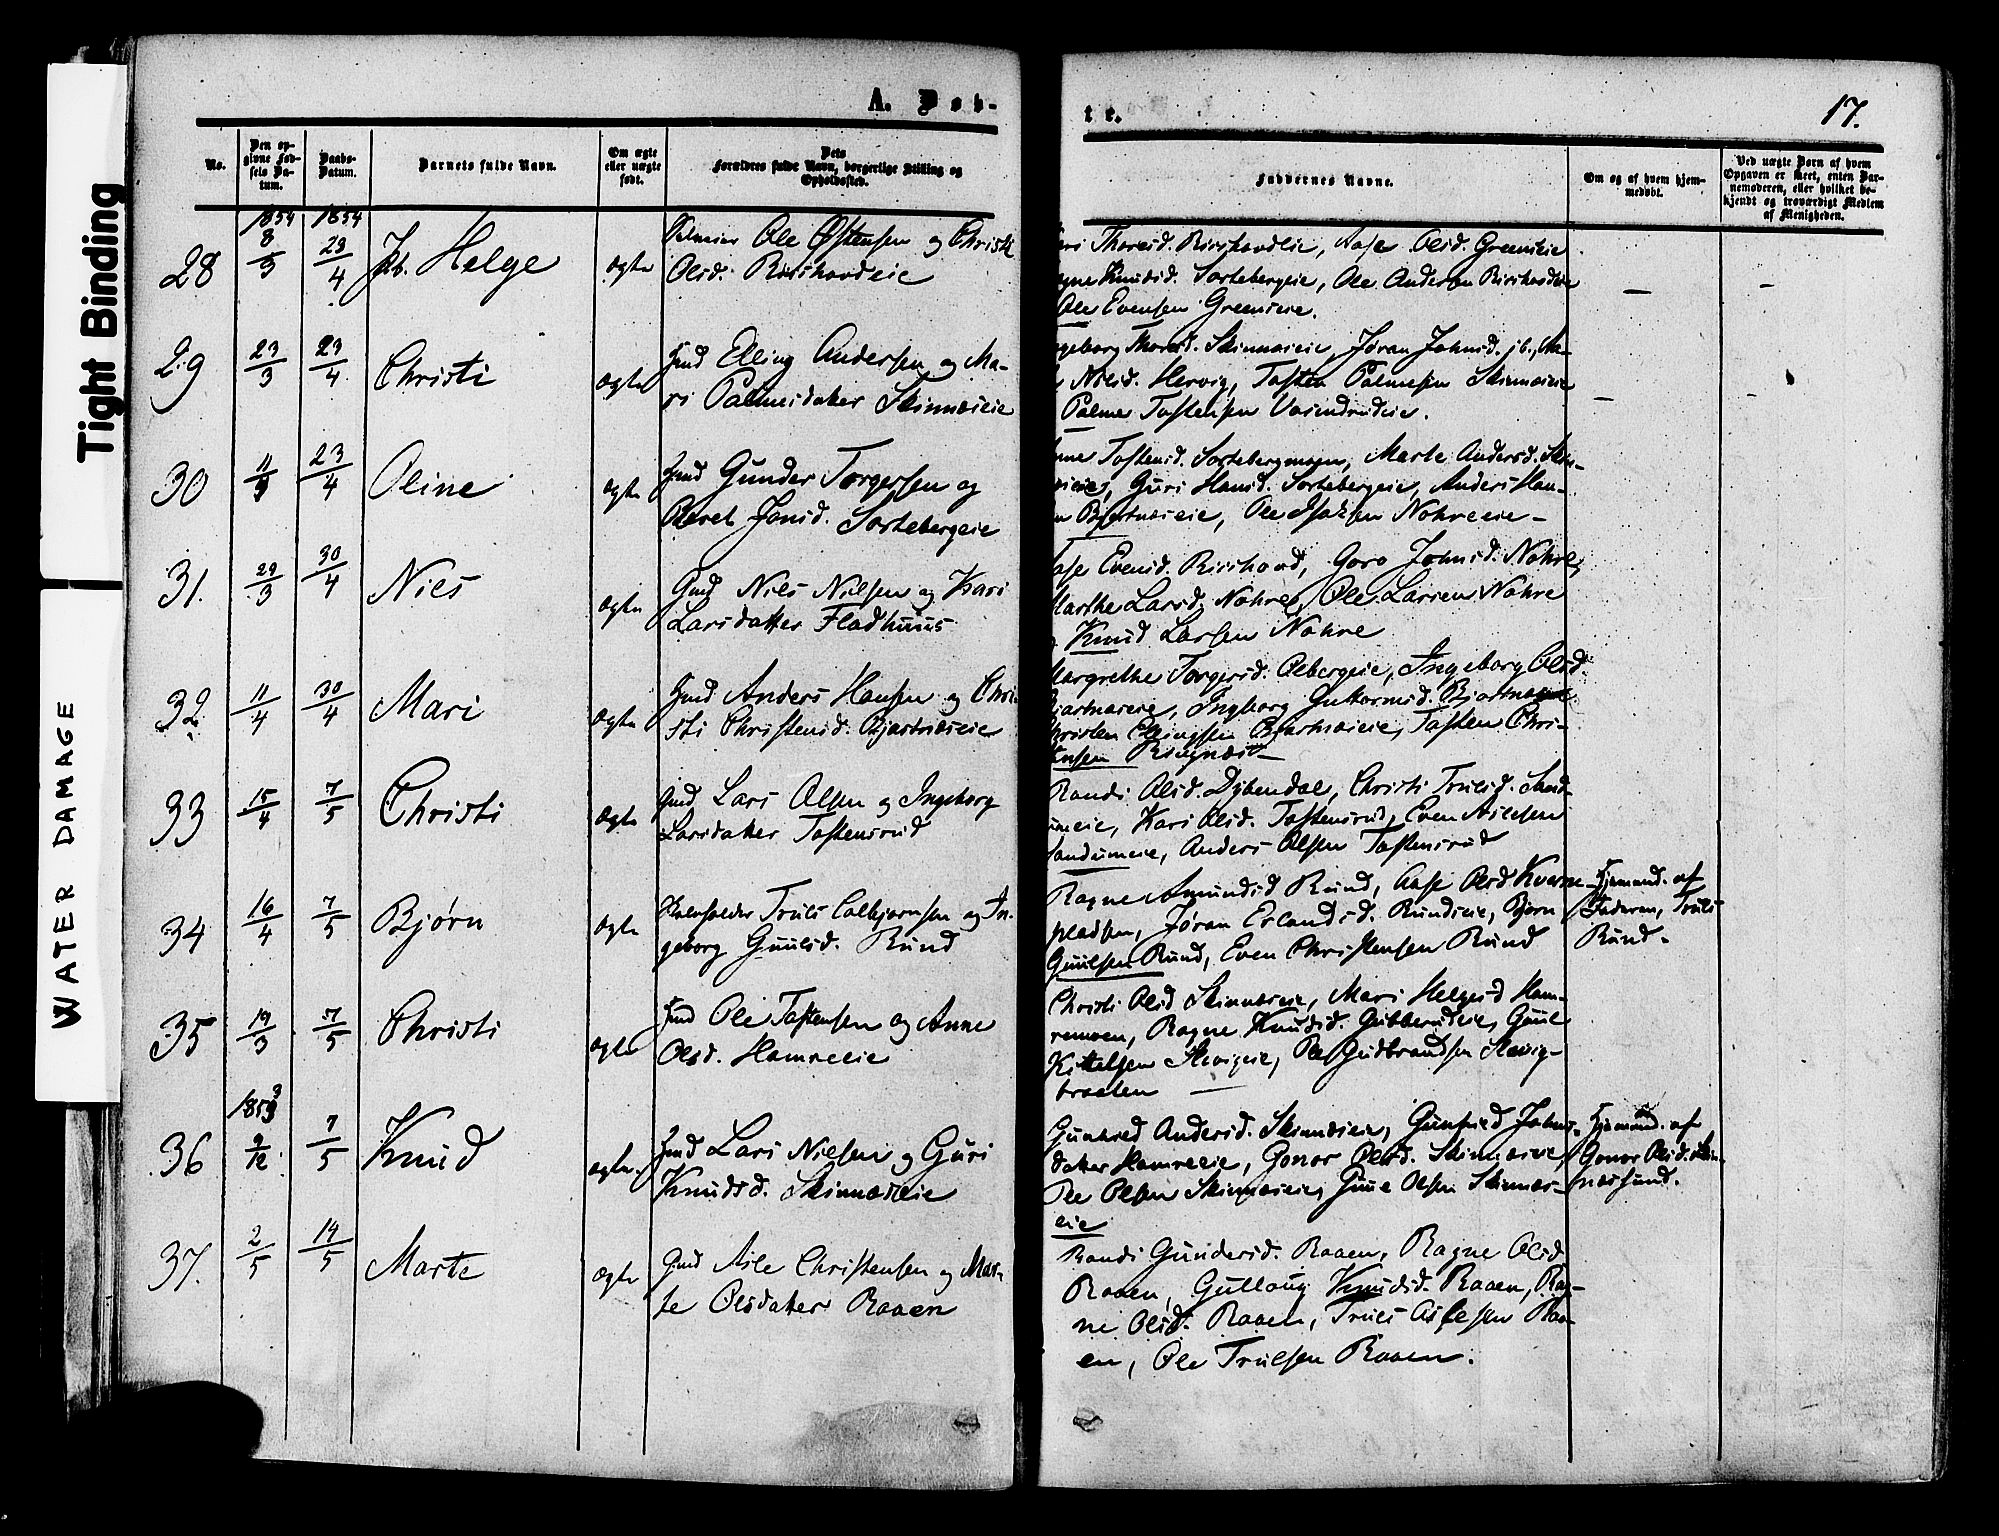 Tight Binding
WATER DAMAGE
A. Døb-
te.
17.
No.
Den op-
givne Fød-
sels Da-
tum.
Daabs-
Datum.
Barnets fulde Navn.
Om ægte
eller uægte
født.
Dets
Forældres fulde Navn, borgerlige Stilling og
Opholdssted.
Faddernes Navne.
Om og af hvem hjem-
medøbt.
Ved uægte Børn af hvem
Opgaven er skeet, enten Bar-
nemoderen, eller hvilket be-
kjendt og troværdigt Medlem
af Menigheden.
1854 1854
28 8/3 23/4 Helge ægte
Ole Østensen og Christi
Olsd.
Thoresd. Aase Olsd. Greeneie
Knudsd. Sortebergeie, Ole Andersen
Ole Evensen Greeneie.
29 23/3 23/4 Christi ægte
Hmd Elling Andersen og Ma-
ri Palmesdatter Skinnæseie
Thoresd. Skinnæseie, Jøran Johnsd. ib.,
Nielsd. Hervig, Tosten Palmesen Skinnæseie
Palme Tostensen
30 11/3 23/4 Oline ægte
Hmd Gunder Torgersen og
Jonsd. Sortebergeie
Tostensd. Marte Andersd.
Guri Hansd. Sortebergeie, Anders Han-
Bjertnæseie, Ole Nohreeie
31. 29/3 30/4 Niels ægte
Gmd Niels Nielsen og Kari
Larsdatter Fladhuus
Aase Evensd. Goro Johnsd. Nohre,
Marthe Larsd. Nohre, Ole Larsen Nohre
Knud Larsen Nohre
32 11/4 30/4 Mari ægte
Hmd Anders Hansen og Chri-
sti Christensd. Bjertnæseie
Margrethe Torgersd. Ingeborg Olsd.
Ingborg Guttormsd.
Christen Ellingsen Bjertnæseie, Tosten Chri-
stensen Ringnæs
33 15/4 7/5 Christi ægte
Gmd Lars Olsen og Ingeborg
Larsdatter Tostensrud
Randi Olsd. Dybendal, Christi Trulsd. Sand-
umeie, Kari Olsd. Tostensrud, Even Nielsen
Sandumeie, Anders Olsen Tostensrud
34 16/4 7/5 Bjørn ægte
Truls Colbjørnsen og In-
geborg Guulsd. Rund
Ragne Amundsd Rund, Aase Olsd Kverne-
pladsen, Jøran Erlandsd. Rundseie, Bjørn
Guulsen Rund, Even Christensen Rund
Hjemmd. af
Faderen, Truls
Rund.
35 19/3 7/5 Christi ægte
Hmd Ole Tostensen og Anne
Olsd. Hamreeie
Christi Olsd Skinnæseie, Mari Helgesd Ham-
remoen, Ragne Knudsd. Gubberudeie, Guul
Kittelsen Ole Gudbrandsen
braaten
1853
36 9/12 7/5 Knud ægte.
Hmd Lars Nielsen og Guri
Knudsd. Skinnæseie
Gunhild Andersd. Skinnæseie, Johns-
datter Hamreeie, Gonor Olsd. Skinnæseie
Ole Olsen Skinnæseie, Guul Olsen Skinnæs-
eie
Hjemmd. af
Gonor Olsd. Skin-
næssund.
37. 2/5 14/5 Marte ægte
Gmd Asle Christensen og Mar-
te Olsdatter Raaen
Randi Gundersd. Raaen, Ragne Olsd
Raaen, Gullaug Knudsd. Raaen, Rag-
ne Olsd. Raaen, Truls Aslesen Raa-
en, Ole Trulsen Raaen.